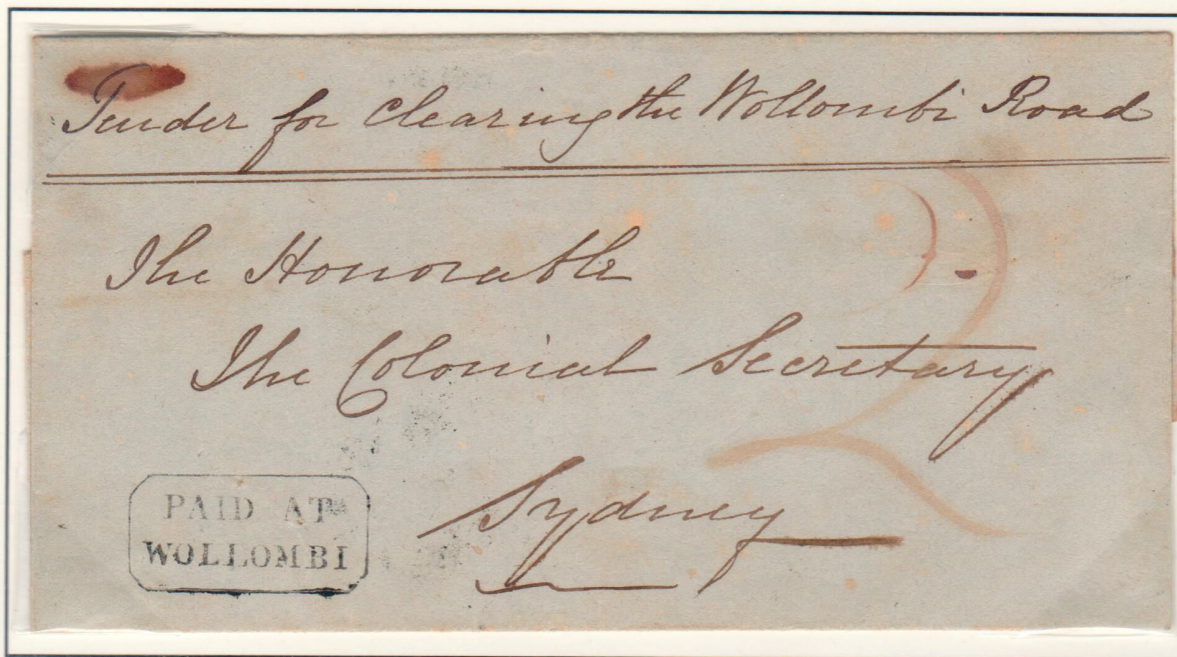 Tender for clearing the Wollombi Road
The Honorable
The Colonial Secretary
2
Sydney
PAID AT
WOLLOMBI